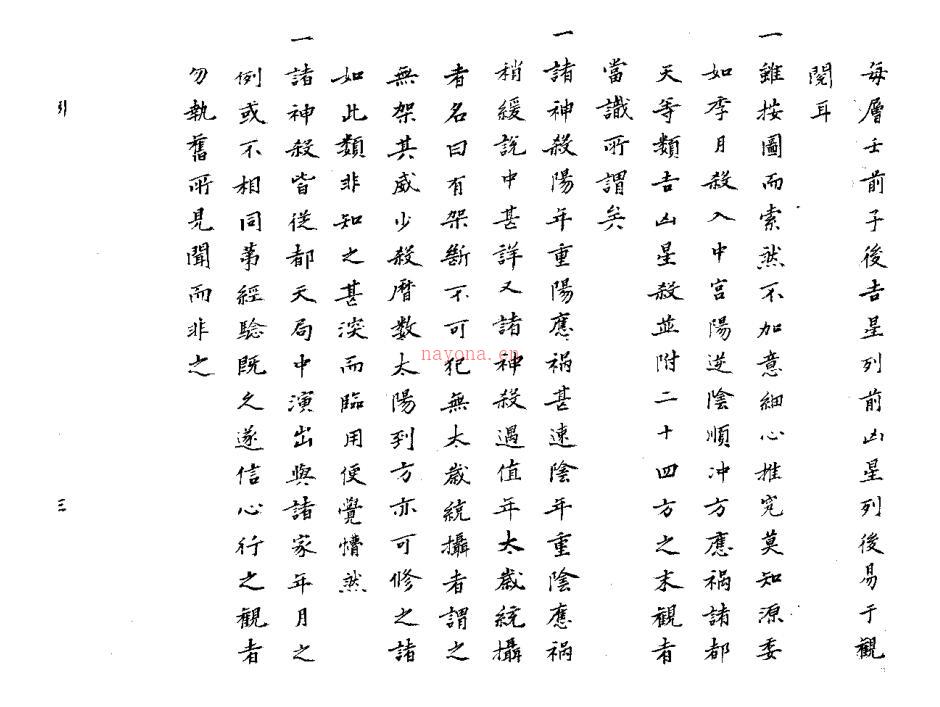 每層壬前子後吉星列前凶星列後易于觀
閱耳
一雖按圖而索然不加意細心推究莫知源委
如季月殺入中宮陽逆陰順冲方應禍諸都
天等類吉凶星殺並附二十四方之末觀者
當識所謂矣
一諸神殺陽年重陽應禍甚速陰年重陰應禍
稍緩說中甚詳又諸神殺遇值年太歲統攝
者名曰有架斷不可犯無太歲統攝者謂之
無架其威少殺曆數太陽到方亦可修之諸
如此類非知之甚深而臨用便覺懵然
一諸神殺皆從都天局中演出與諸家年月之
例或不相同第經驗既久遂信心行之觀者
勿執舊所見聞而非之
引
三
nayona.cn